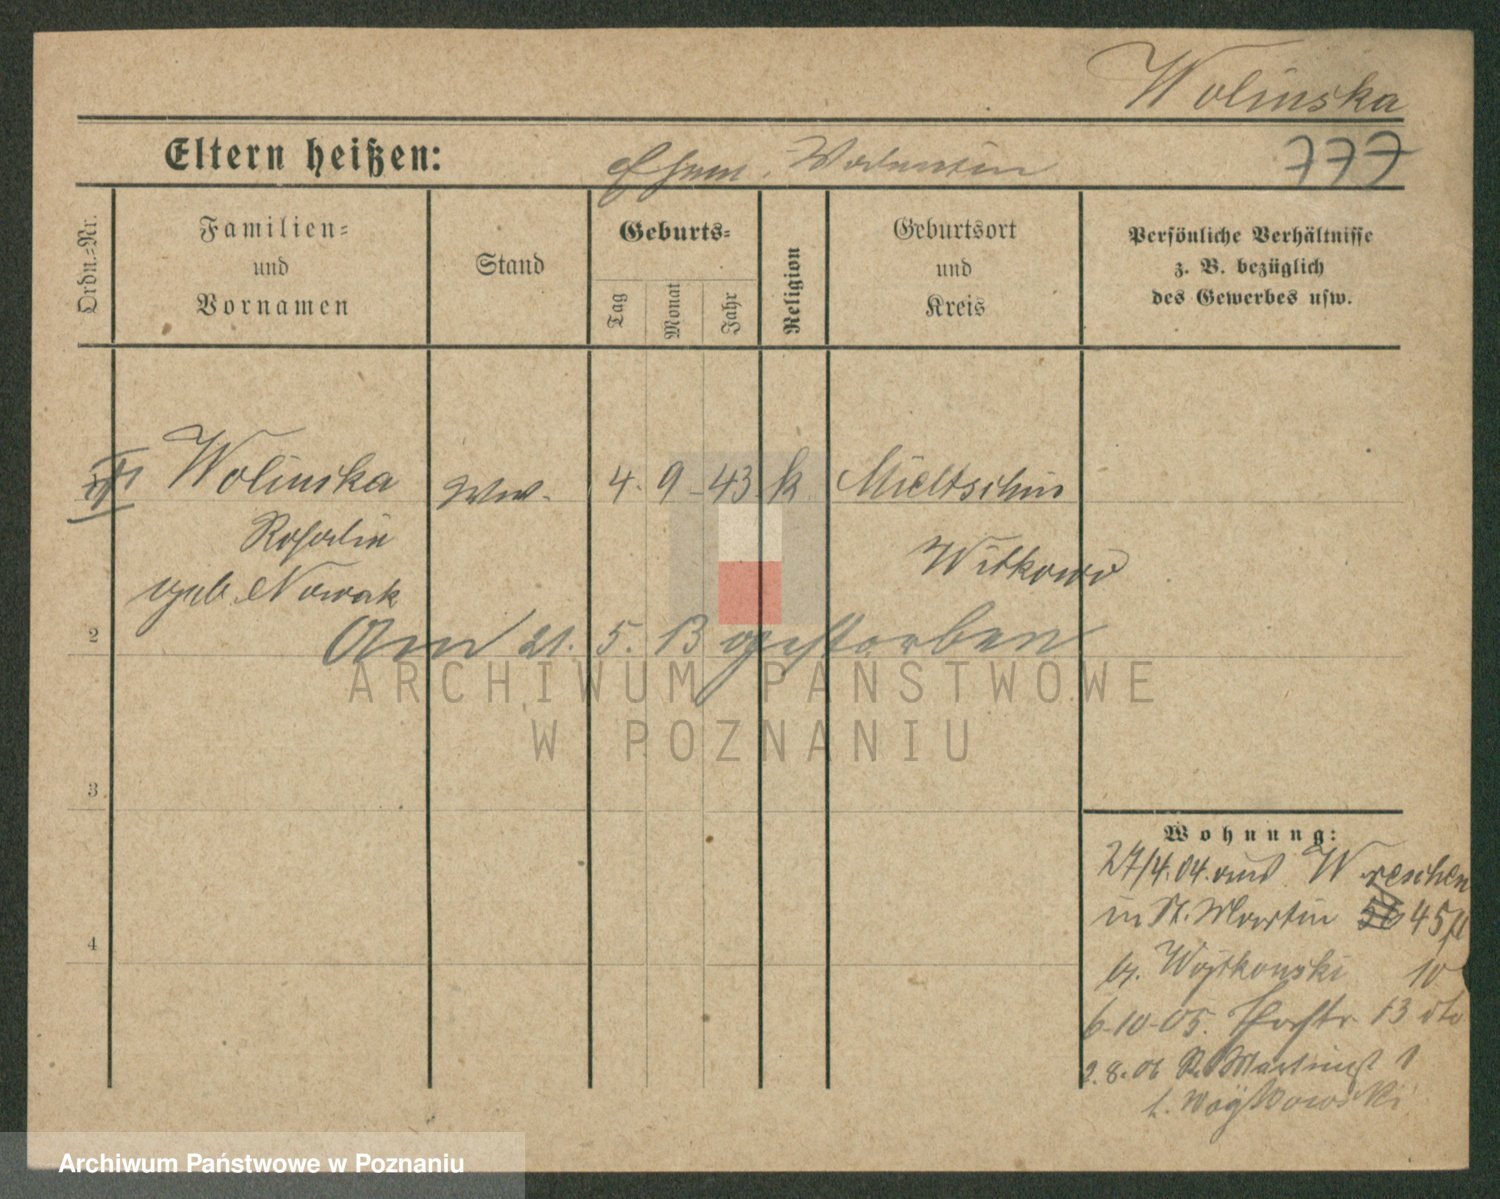 Wolinska
Eltern heißen: Ehem. Valentin 777
Ordn.-Nr.
Familien-
und
Vornamen
Stand
Geburts-
Tag
Monat
Jahr
Religion
Geburtsort
und
Kreis
Persönliche Verhältnisse
z. B. bezüglich
des Gewerbes usw.
Wolinska Ww. 4. 9 - 43 k. Mieltschin
Rosalie Witkowo
geb. Nowak
2 Am 21. 5. 13 gestorben
ARCHIWUM PAŃSTWOWE
W POZNANIU
3
4
Wohnung:
27/4.04. aus Wreschen
in St. Martin 45
b. Woytkowski 10
6-10-05. 13
2.8.06 St. Martinst 1
b. Woytkowski
Archiwum Państwowe w Poznaniu